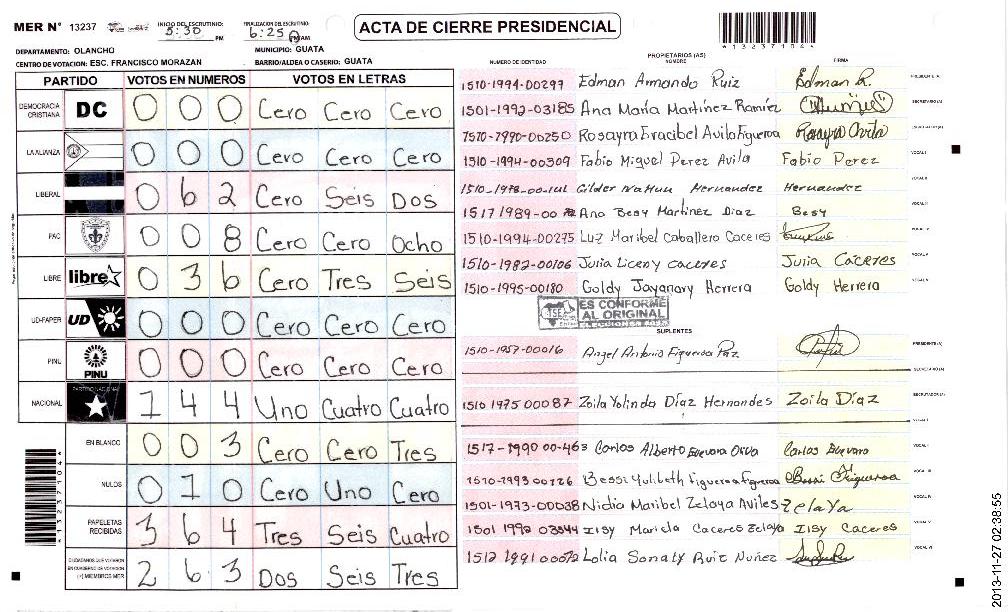 MER Nº 13237
INICIO DEL ESCRUTINIO: 5:30 PM
FINALIZACION DEL ESCRUTINIO: 6:25 PM AM
ACTA DE CIERRE PRESIDENCIAL
* 1 3 2 3 7 1 0 4 *
DEPARTAMENTO: OLANCHO
MUNICIPIO: GUATA
CENTRO DE VOTACION: ESC. FRANCISCO MORAZAN
BARRIO/ALDEA O CASERIO: GUATA
PARTIDO VOTOS EN NUMEROS VOTOS EN LETRAS
DEMOCRACIA CRISTIANA DC 0 0 0 Cero Cero Cero
LA ALIANZA 0 0 0 Cero Cero Cero
LIBERAL 0 6 2 Cero Seis Dos
PAC 0 0 8 Cero Cero Ocho
LIBRE libre 0 3 6 Cero Tres Seis
UD-FAPER UD 0 0 0 Cero Cero Cero
PINU PINU 0 0 0 Cero Cero Cero
NACIONAL 1 4 4 Uno Cuatro Cuatro
EN BLANCO 0 0 3 Cero Cero Tres
NULOS 0 1 0 Cero Uno Cero
PAPELETAS RECIBIDAS 3 6 4 Tres Seis Cuatro
CIUDADANOS QUE VOTARON EN CUADERNO DE VOTACION (+) MIEMBROS MER 2 6 3 Dos Seis Tres
* 1 3 2 3 7 1 0 4 *
PROPIETARIOS (AS)
NUMERO DE IDENTIDAD NOMBRE FIRMA
1510-1994-00297 Edman Armando Ruiz Edman R. PRESIDENTE (A)
1501-1992-03185 Ana María Martínez Ramírez SECRETARIO (A)
1510-1990-00250 Rosayra Eracibel Avila Figueroa Rosayra Avila ESCRUTADOR (A)
1510-1994-00309 Fabio Miguel Perez Avila Fabio Perez VOCAL I
1510-1978-00-101 Gilder Nahun Hernandez Hernandez VOCAL II
1517 1989-00 Ana Besy Martinez Diaz Besy VOCAL III
1510-1994-00275 Luz Maribel Caballero Caceres VOCAL IV
1510-1982-00106 Julia Liceny caceres Julia Cáceres VOCAL V
1510-1995-00180 Goldy Jayanary Herrera Goldy Herrera
TSE ES CONFORME AL ORIGINAL
SUPLENTES
1510-1957-00016 Angel Antonio Figueroa Paz PRESIDENTE (A)
SECRETARIO (A)
1510 1975 00087 Zoila Yolinda Díaz Hernandes Zoila Díaz ESCRUTADOR (A)
VOCAL I
1517-1990 00-463 Carlos Alberto Guevara Oliva Carlos Guevara
1510-1993 00126 Bessi Yulibeth Figueroa Figueroa Bessi Figueroa VOCAL III
1501-1973-00038 Nidia Maribel Zelaya Aviles Zelaya VOCAL IV
1501 1992 03544 Irsy Mariela Caceres Zelaya Irsy Caceres VOCAL V
1512 1991 00072 Lolia Sonaly Ruiz Nuñez VOCAL VI
2013-11-27 02:38:55